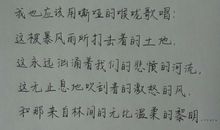 我也应该用嘶哑的喉咙歌唱：
这被暴风雨所打击着的土地，
这永远汹涌着我们的悲愤的河流，
这无止息地吹刮着的激怒的风，
和那来自林间的无比温柔的黎明……